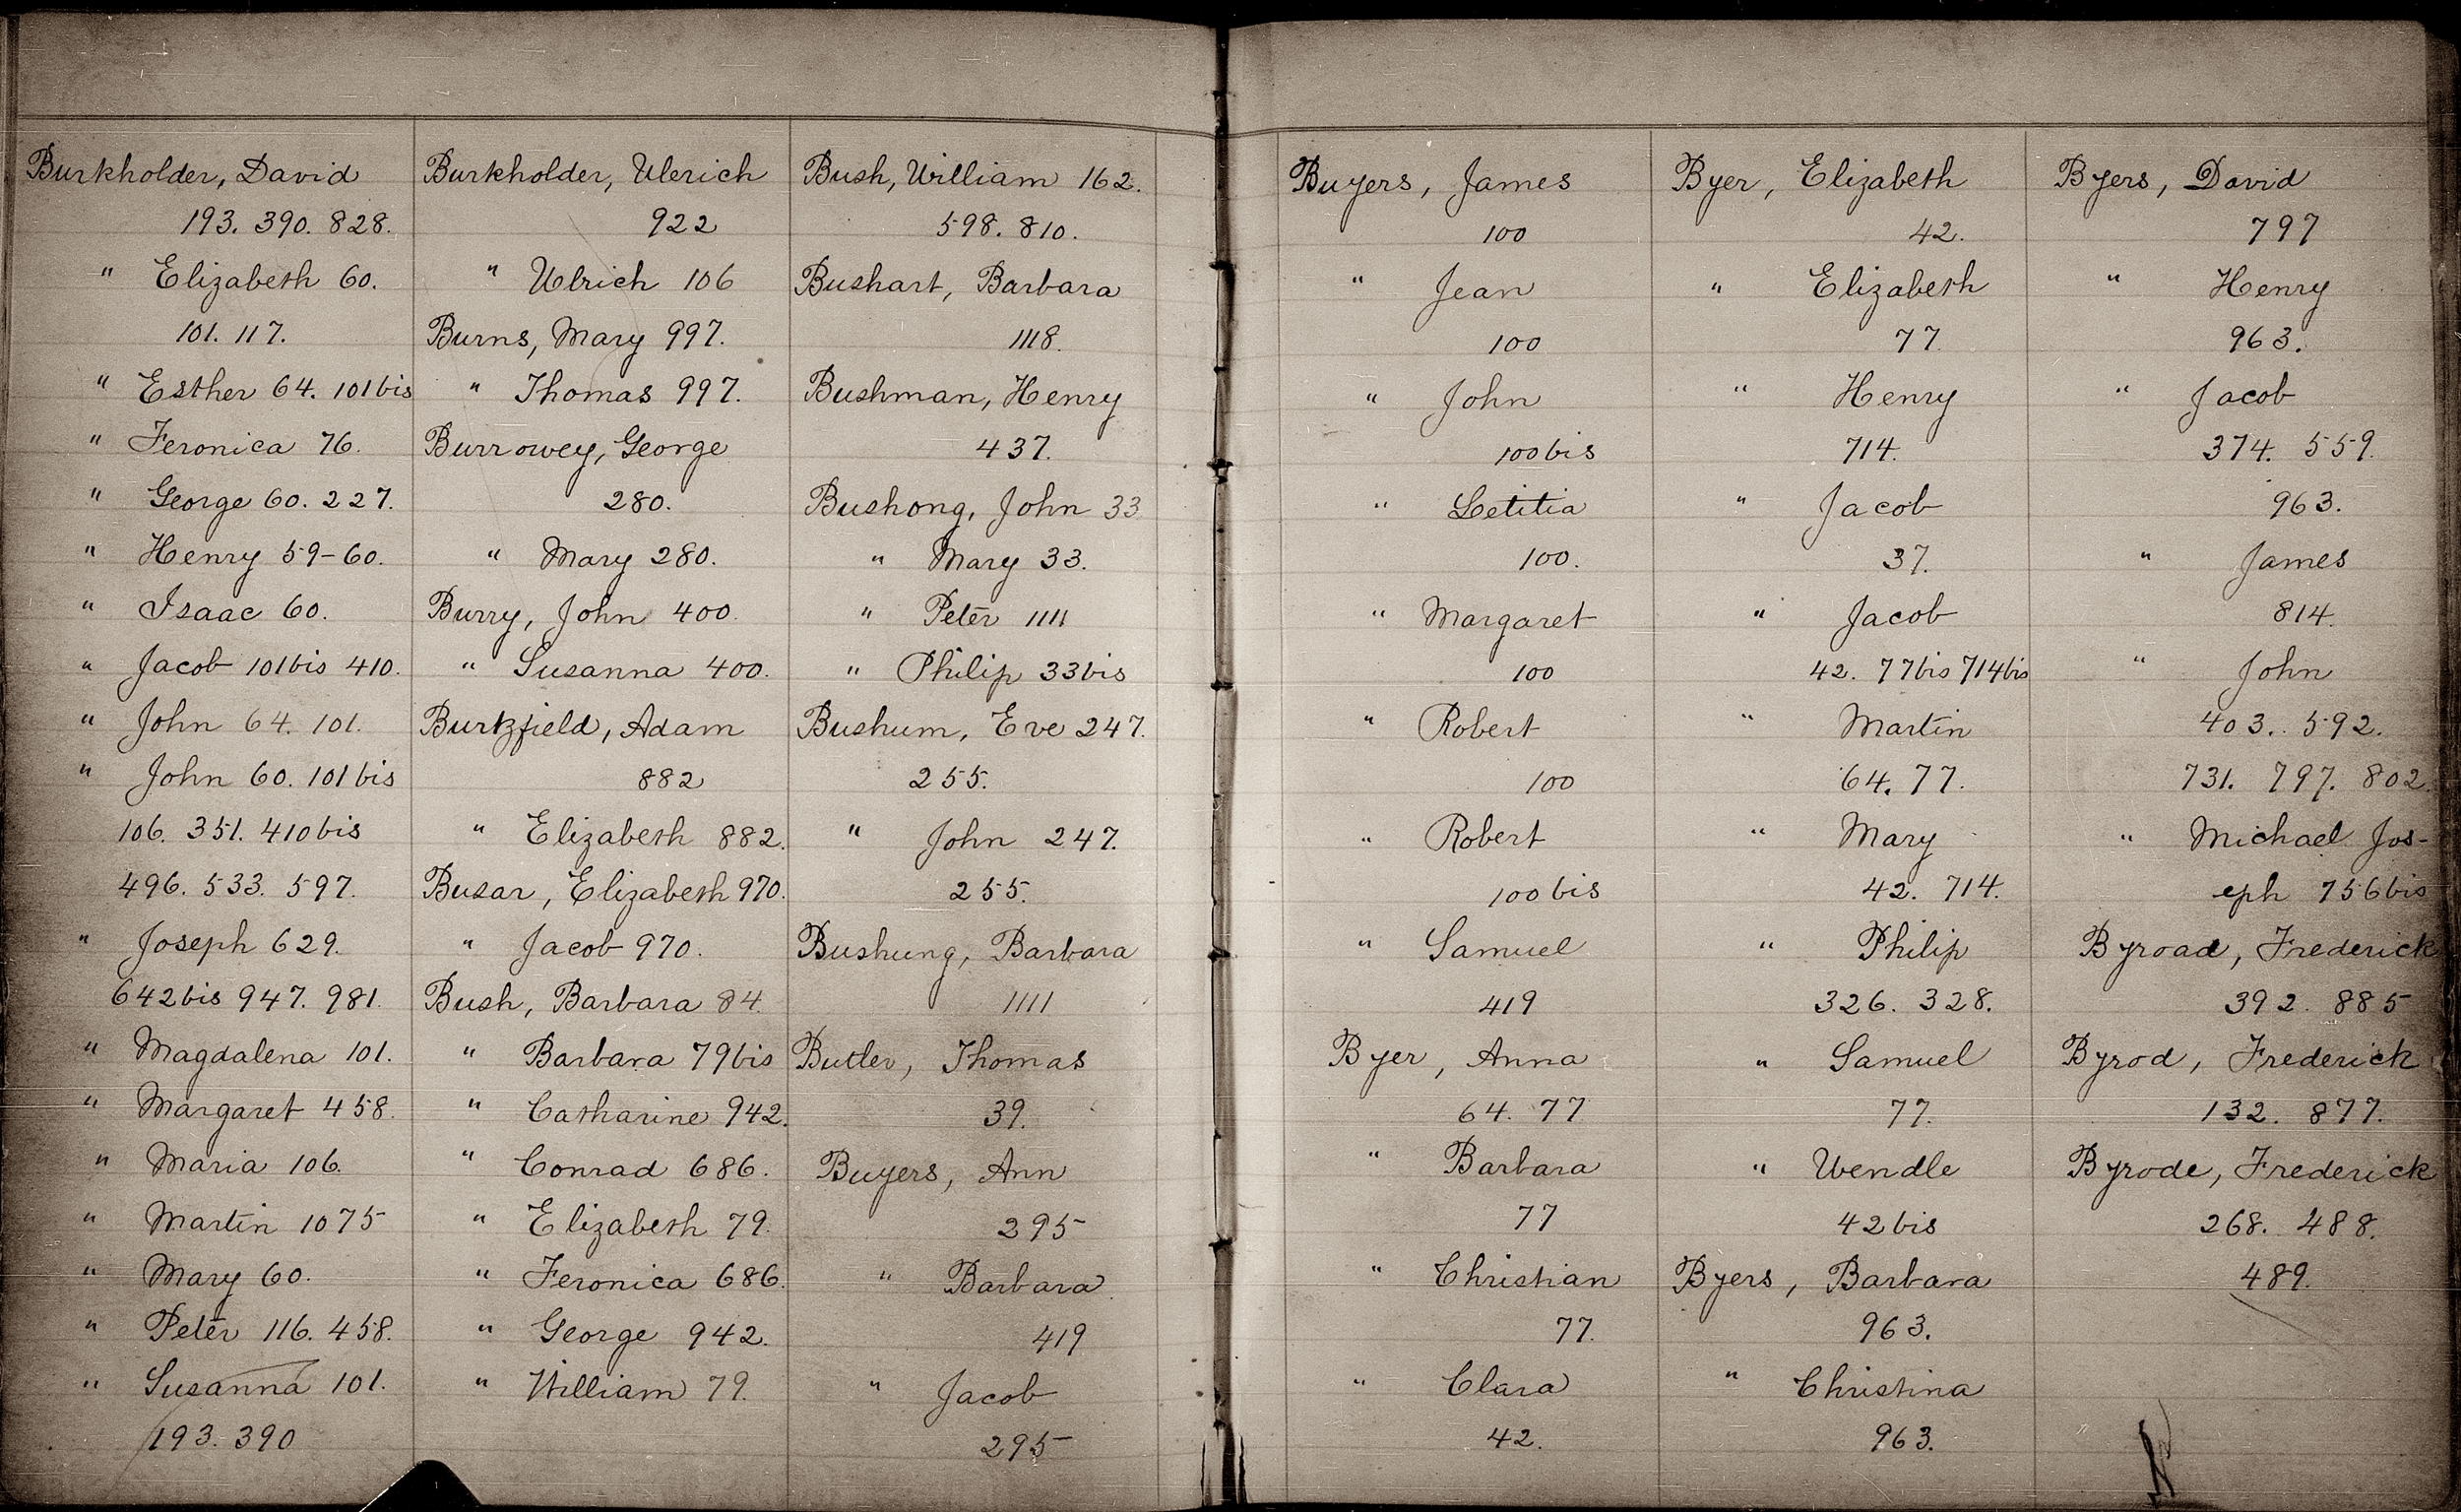 Burkholder, David
193. 390. 828.
" Elizabeth 60.
101. 117.
" Esther 64. 101bis
" Feronica 76.
" George 60. 227.
" Henry 59-60.
" Isaac 60.
" Jacob 101bis 410.
" John 64. 101.
" John 60. 101bis
106. 351. 410bis
496. 533. 597.
" Joseph 629.
642bis 947. 981.
" Magdalena 101.
" Margaret 458.
" Maria 106.
" Martin 1075
" Mary 60.
" Peter 116. 458.
" Susanna 101.
193. 390
Burkholder, Ulerich
922
" Ulrich 106
Burns, Mary 997.
" Thomas 997.
Burrowey, George
280.
" Mary 280.
Burry, John 400.
" Susanna 400.
Burtzfield, Adam
882
" Elizabeth 882.
Busar, Elizabeth 970.
" Jacob 970.
Bush, Barbara 84.
" Barbara 79bis
" Catharine 942.
" Conrad 686.
" Elizabeth 79.
" Feronica 686.
" George 942.
" William 79.
Bush, William 162.
598. 810.
Bushart, Barbara
1118.
Bushman, Henry
437.
Bushong, John 33
" Mary 33.
" Peter 1111
" Philip 33bis
Bushum, Eve 247.
255.
" John 247.
255.
Bushung, Barbara
1111
Butler, Thomas
39.
Buyers, Ann
295
" Barbara
419
" Jacob
295
Buyers, James
100
" Jean
100
" John
100bis
" Letitia
100.
" Margaret
100
" Robert
100
" Robert
100bis
" Samuel
419
Byer, Anna
64. 77
" Barbara
77
" Christian
77.
" Clara
42.
Byer, Elizabeth
42.
" Elizabeth
77
" Henry
714.
" Jacob
37.
" Jacob
42. 77bis 714bis
" Martin
64. 77.
" Mary
42. 714.
" Philip
326. 328.
" Samuel
77.
" Wendle
42bis
Byers, Barbara
963.
" Christina
963.
Byers, David
797
" Henry
963.
" Jacob
374. 559.
963.
" James
814.
" John
403. 592.
731. 797. 802.
" Michael Jos-
eph 756bis
Byroad, Frederick
392. 885
Byrod, Frederick
132. 877.
Byrode, Frederick
268. 488.
489.